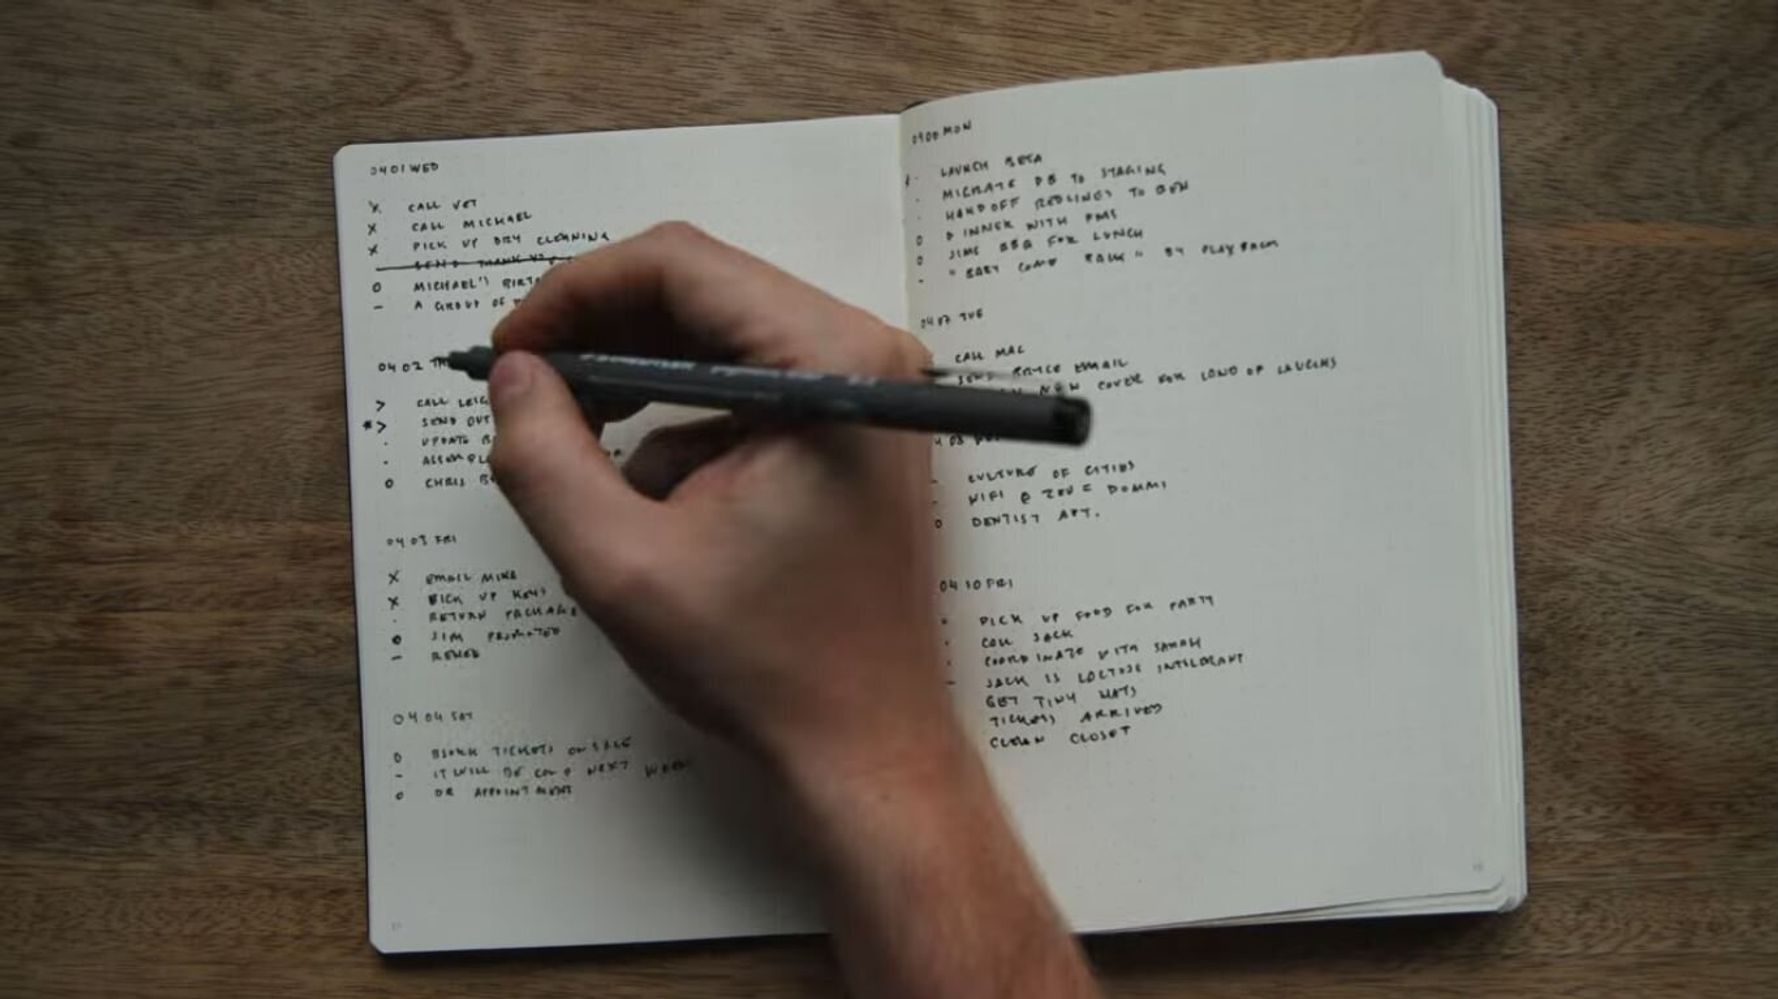 04 01 WED
X CALL VET
X CALL MICHAEL
X PICK UP DRY CLEANING
SEND THANK
O MICHAEL'S
– A GROUP OF
04 02
> CALL
* > SEND OUT
· UPDATE
·
O CHRIS
04 03 FRI
X EMAIL MIKE
X PICK UP KEYS
· RETURN PACKAGE
O JIM PROMOTED
–
04 04 SAT
O TICKETS ON SALE
– IT WILL BE COLD NEXT WEEK
O DR APPOINTMENT
MON
LAUNCH BETA
· MIGRATE DB TO STAGING
· HANDOFF REDLINES TO BEN
O DINNER WITH PMS
O BBQ FOR LUNCH
– "BABY COME BACK" BY PLAYER
04 07 TUE
CALL MAC
SEND EMAIL
NEW COVER FOR LORD OF LAUGHS
08
– CULTURE OF CITIES
– WIFI @
O DENTIST APT.
04 10 FRI
· PICK UP FOOD FOR PARTY
· CALL JACK
· COORDINATE WITH SARAH
– JACK IS LACTOSE INTOLERANT
GET TINY HATS
TICKETS ARRIVED
CLEAN CLOSET